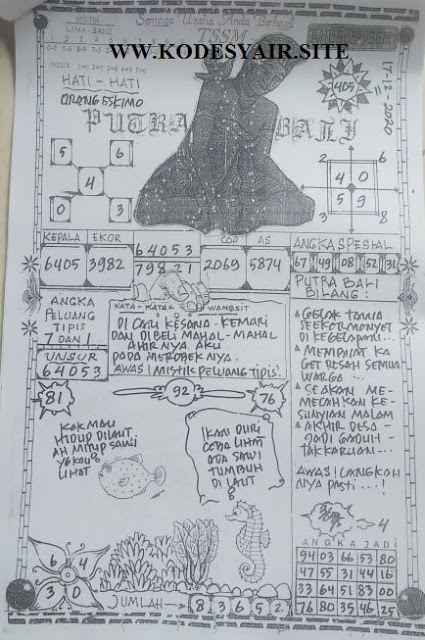 MISTIK
LAMA - BARU
Sengga Usaha Anda Berhasil
TSSM
WWW.KODESYAIR.SITE
HATI - HATI
ORANG ESKIMO
PUTRA BALI
405
17-12-2020
5 6
4
0 3
2 6
4 0
5 9
3 8
KEPALA EKOR
6405 3982
64053
79821
COP AS
2069 5874
ANGKA SPESIAL
67 49 08 52 31
ANGKA
PELUANG
TIPIS
7 DAN 1
UNSUR
64053
KATA - KATA WANGSIT
DI CARI KESANA - KEMARI
DAN DIBELI MAHAL - MAHAL
AHIR NYA. AKU
PADA MEROBEK NYA.
AWAS! MISTIK PELUANG TIPIS!
PUTRA BALI
BILANG:
GELAK TAWA
SEEKOR MONYET
DI KEGELAPAN...
MEMBUAT KA
GET RESAH SEMUA
WARGA...
SEAKAN ME-
MECAHKAN KE-
SUNYIAN MALAM
AKHIR DESA -
JADI GADUH
TAK KARUAN...
AWAS! LANGKAH
NYA PASTI...!
81
92
76
KAK MAU
HIDUP DILAUT.
LIHAT
IKAN DURI
COBA LIHAT
ADA SAWI
TUMBUH
DI LAUT
6 4
3 0
JUMLAH
8 3 6 5 2
4
ANGKA JADI
94 03 66 53 80
47 55 31 44 16
33 64 51 83 00
76 80 35 46 25